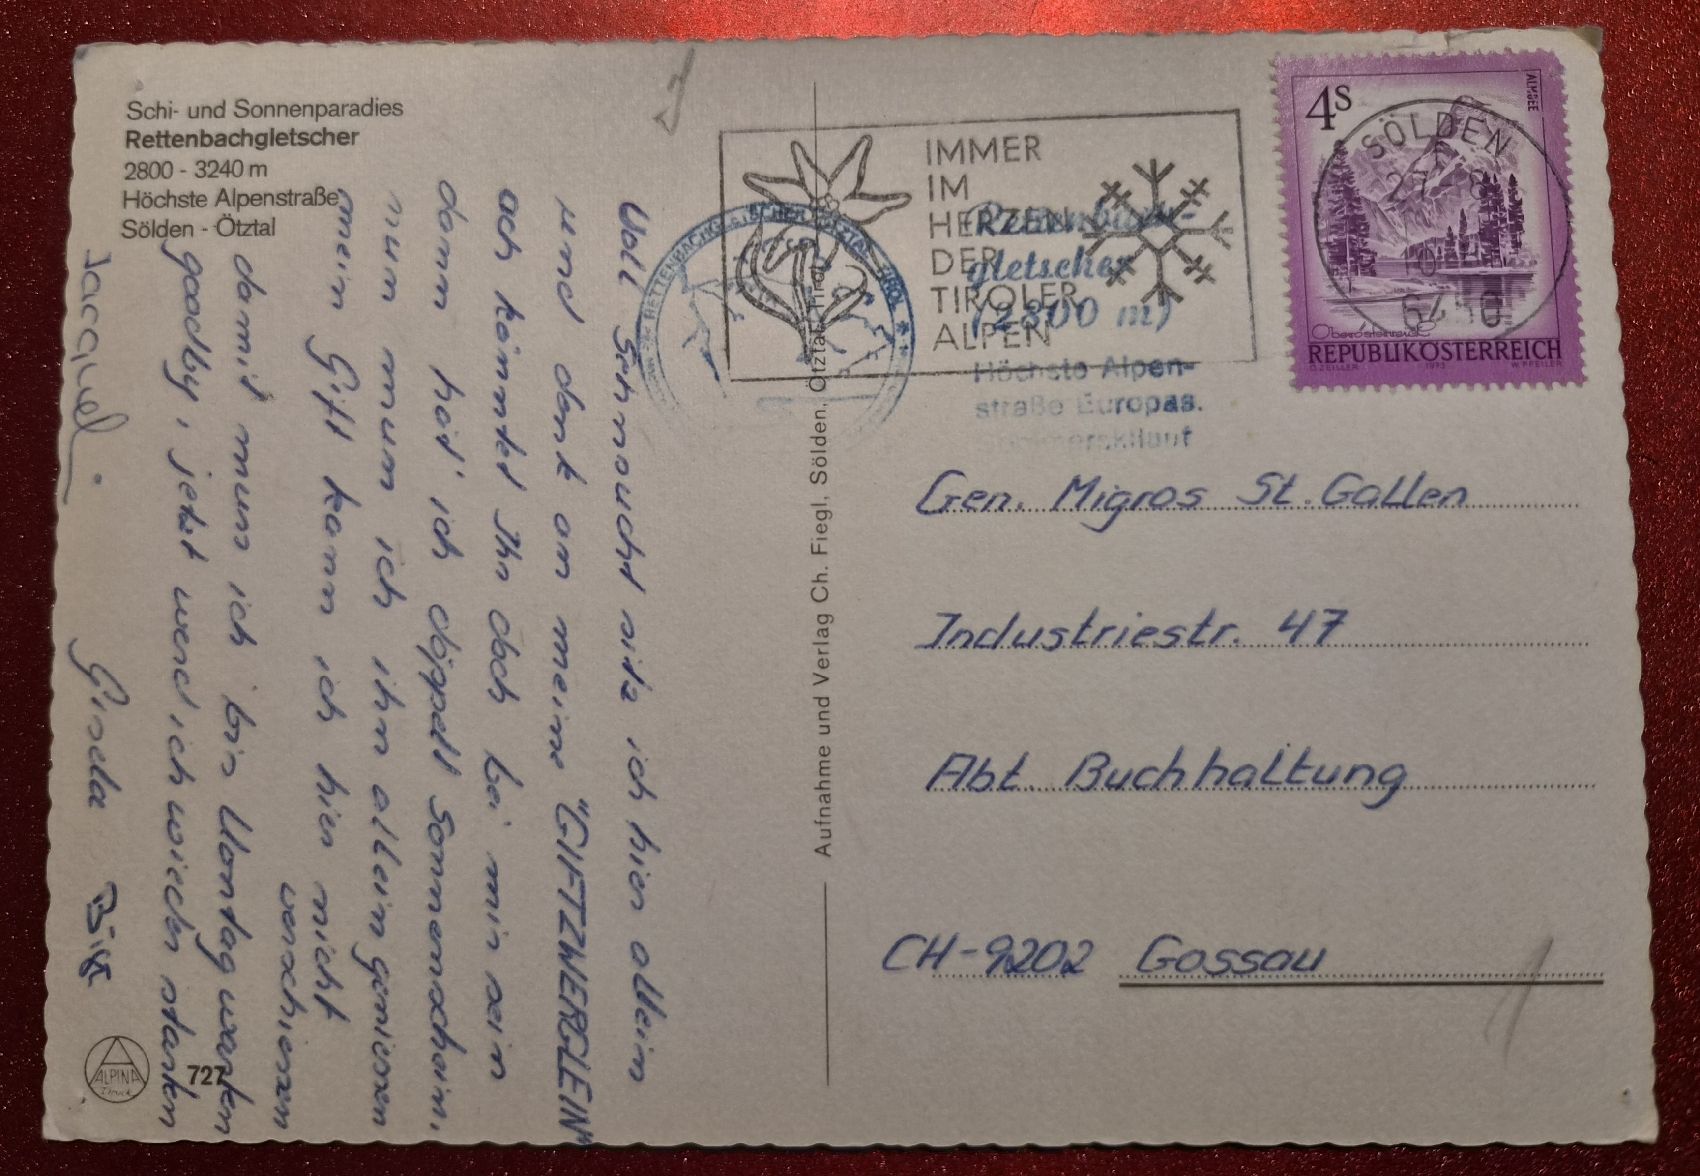 Schi- und Sonnenparadies
Rettenbachgletscher
2800 - 3240 m
Höchste Alpenstraße
Sölden - Ötztal
Voll Sehnsucht sitz ich hier allein
und denk an meine "GIFTZWERGLEIN"
ach könntet Ihr doch bei mir sein
dann hätt' ich doppelt Sonnenschein.
nun muss ich ihn allein geniessen
mein Gift kann ich hier nicht
verschiessen
damit muss ich bis Montag warten
goodby, jetzt werd ich wieder starten
Gisela
Aufnahme und Verlag Ch. Fiegl, Sölden, Ötztal, Tirol
ALPINA
Druck
727
IMMER
IM
HERZEN
DER
TIROLER
ALPEN
RETTENBACHGLETSCHER ÖTZTAL TIROL
Rettenbach-
gletscher
(2800 m)
Höchste Alpen-
straße Europas.
4S
ALMSEE
SÖLDEN
6450
Oberösterreich
REPUBLIK ÖSTERREICH
O. ZEILLER 1973 W. PFEILER
Gen. Migros St. Gallen
Industriestr. 47
Abt. Buchhaltung
CH-9202 Gossau